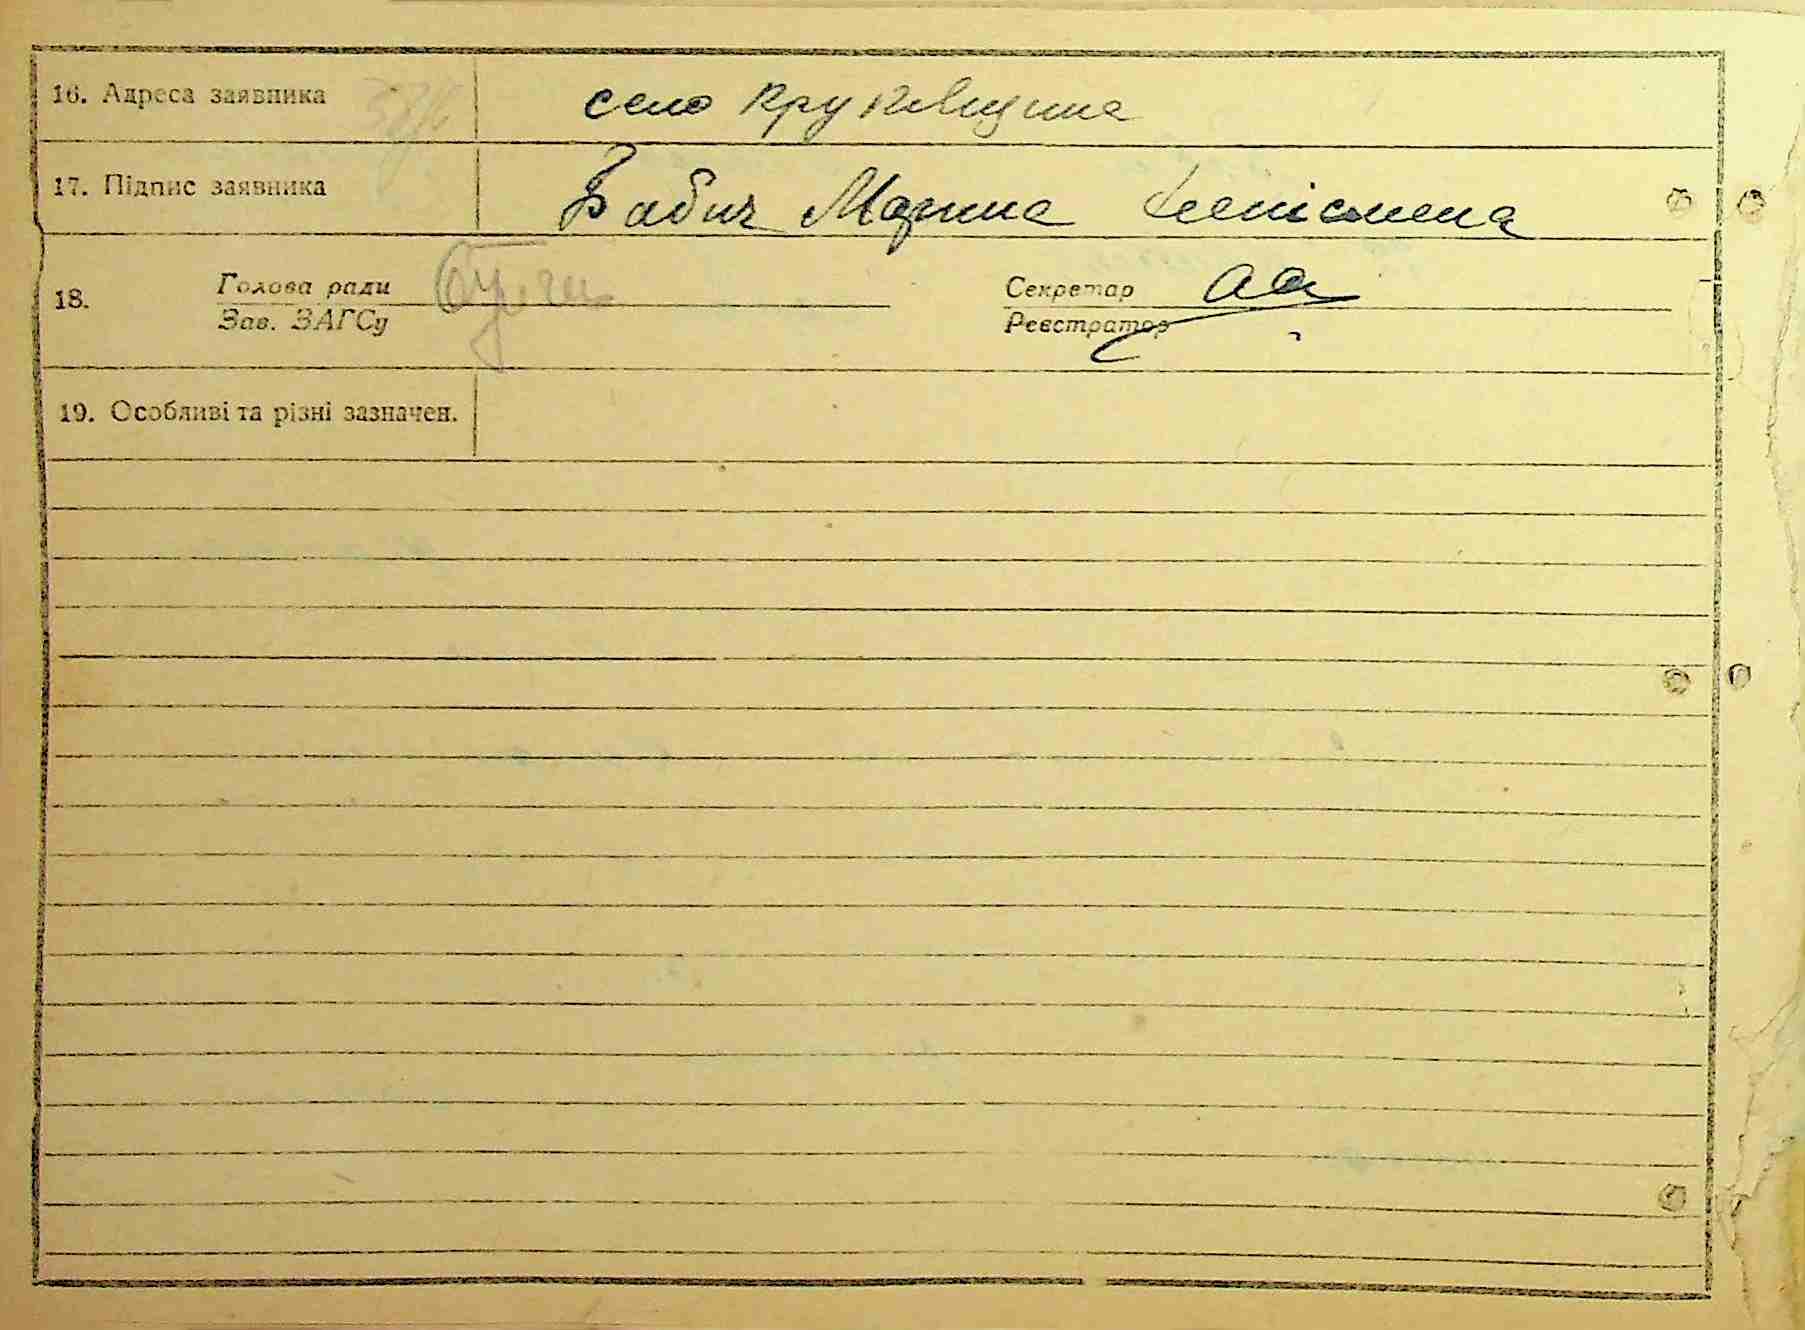 16. Адреса заявника село Круківщина
17. Підпис заявника Бабич Марина неписмена
18. Голова ради Секретар
Зав. ЗАГСу Реєстратор
19. Особливі та різні зазначен.